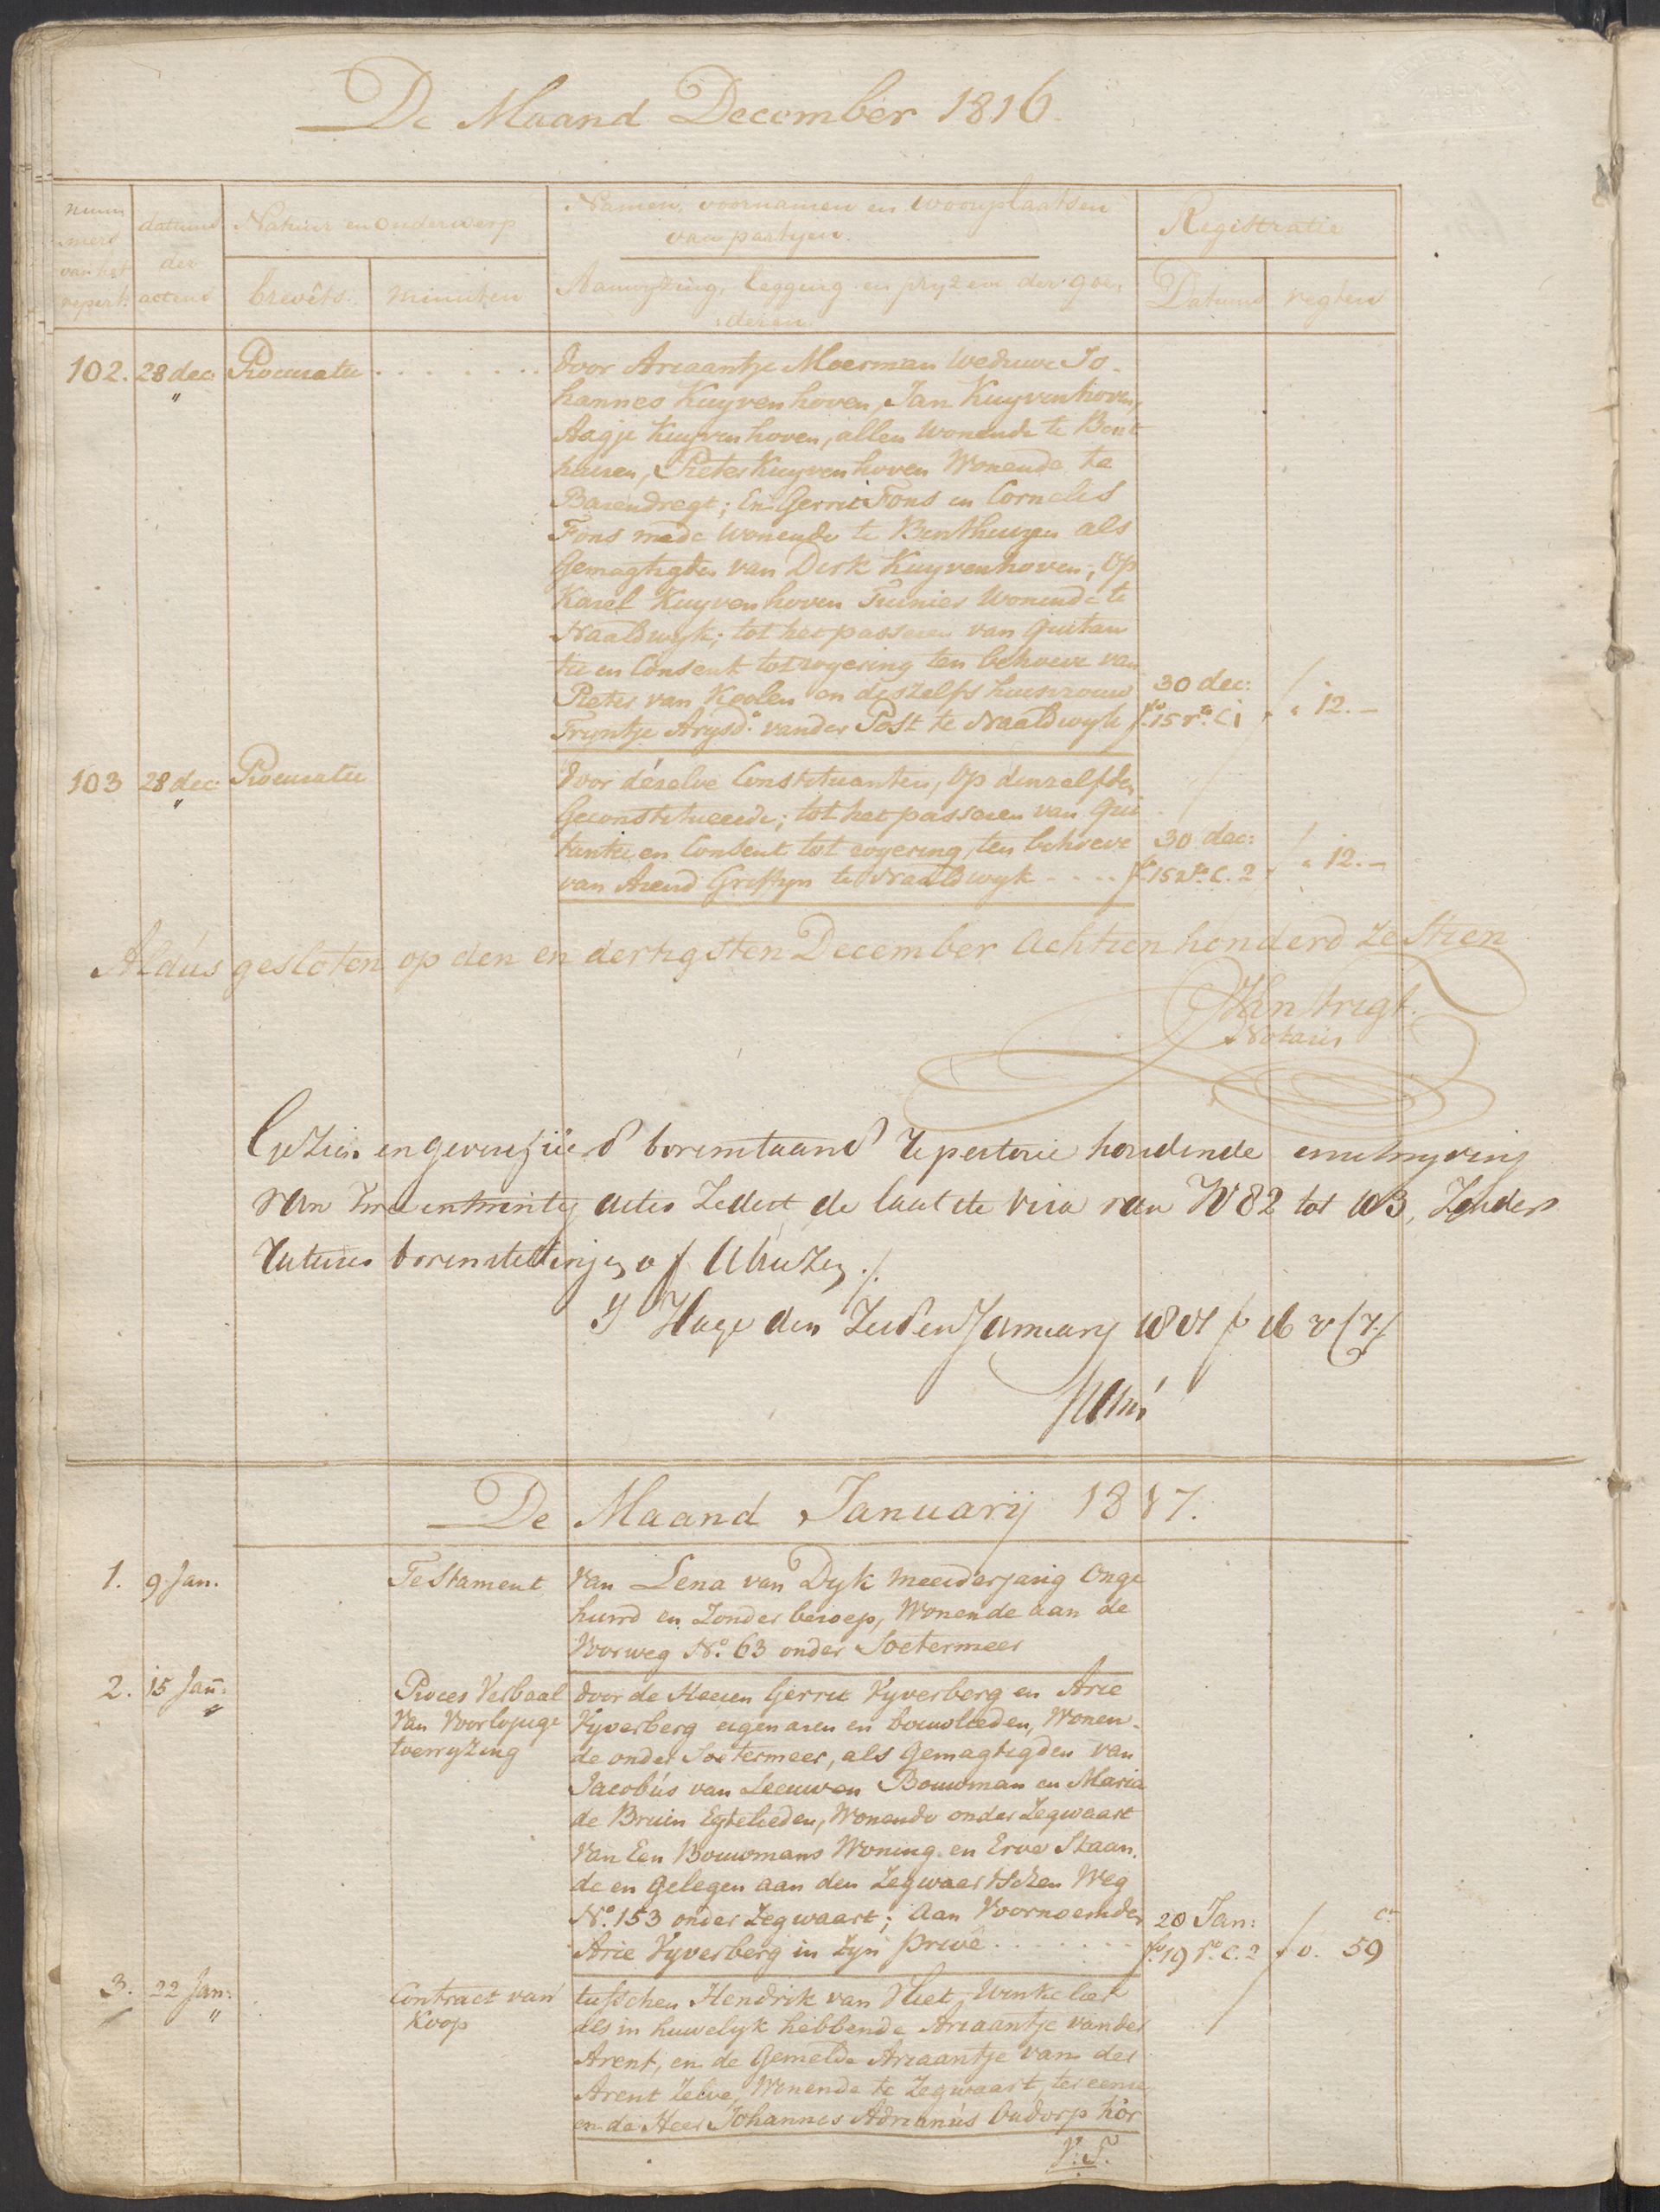 De Maand December 1816.
num
mers
van het
repert:
datums
der
actens
Natuur en Onderwerp
brevêts.
minuten
Namen, voornamen en woonplaatsen
van partyen.
Aanwyzing, legging en pryzen der goe-
:deren.
Registratie
Datums
regten
102. 28 dec: Procuratie . . . . . . . door Ariaantje Moerman Weduwe Jo-
hannes Kuyvenhoven, Jan Kuyvenhoven,
Aagje Kuyvenhoven, allen Wonende te Bent
huizen, Pieter Kuyvenhoven Wonende te
Barendregt; En Gerrit Fons en Cornelis
Fons mede Wonende te Benthuizen als
Gemagtigden van Dirk Kuyvenhoven; Op
Karel Kuyvenhoven Tuinier Wonende te
Naaldwyk; tot het passeren van Quitan
tie en Consent tot royering ten behoeve van
Pieter van Koolen en deszelfs huisvrouw 30 dec:
Tryntje Arysd.r vander Post te Naaldwyk fo. 15 ro. C 1 " " 12. –
103 28 dec: Procuratie door dezelve Constituanten, Op denzelfden
Geconstitueerde; tot het passeren van Qui
tantie en Consent tot royering, ten behoeve 30 dec:
van Arend Griffyn te Naaldwyk . . . . fo. 15 ro. C. 2 " " 12. –
Aldus gesloten op den en dertigsten December Achtien honderd Zestien
Van Tricgt.
Notaris
Gezien en geverifiëerd bovenstaand Repertorie houdende inschryving
van twee en twintig actes Zedert de laatste visa van No 82 tot 103, Zonder
Ratures bovenstellingen of Abuizen ./.
S' Hage den Januarij 1817 fo 16 vo
De Maand Januarij 1817.
1. 9 Jan. Testament Van Lena van Dyk meerderjarig Onge
huwd en Zonder beroep, Wonende aan de
Voorweg No. 63 onder Soetermeer
2. 15 Jan: Proces Verbaal door de Heeren Gerrit Vyverberg en Arie
Van Voorlopige Vyverberg eigenaren en bouwlieden, Wonen-
toewyzing de onder Soetermeer, als Gemagtigden van
Jacobus van Leeuwen Bouwman en Maria
de Bruin Egtelieden, Wonende onder Zegwaart
Van Een Bouwmans Woning en Erve Staan-
de en Gelegen aan den Zegwaartschen Weg
No. 153 onder Zegwaart; aan Voornoemden 20 Jan: / C.s
Arie Vyverberg in Zyn privé . . . . . . fo. 19 ro. C. 2 f 0. 59
3. 22 Jan: Contract van tusschen Hendrik van Vliet, Winkelier
Koop als in huwelyk hebbende Ariaantje vander
Arent, en de Gemelde Ariaantje van der
Arent Zelve, Wonende te Zegwaart, ter eenre
en de Heer Johannes Adrianus Oudorp hor
V. T.